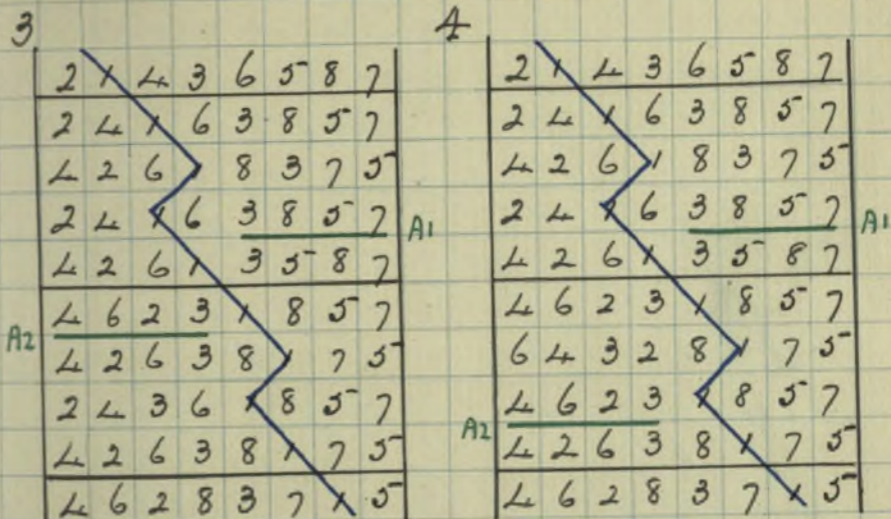 3
2 1 4 3 6 5 8 7
2 4 1 6 3 8 5 7
4 2 6 1 8 3 7 5
2 4 1 6 3 8 5 7 A1
4 2 6 1 3 5 8 7
A2 4 6 2 3 1 8 5 7
4 2 6 3 8 1 7 5
2 4 3 6 1 8 5 7
4 2 6 3 8 1 7 5
4 6 2 8 3 7 1 5
4
2 1 4 3 6 5 8 7
2 4 1 6 3 8 5 7
4 2 6 1 8 3 7 5
2 4 1 6 3 8 5 7 A1
4 2 6 1 3 5 8 7
4 6 2 3 1 8 5 7
6 4 3 2 8 1 7 5
A2 4 6 2 3 1 8 5 7
4 2 6 3 8 1 7 5
4 6 2 8 3 7 1 5